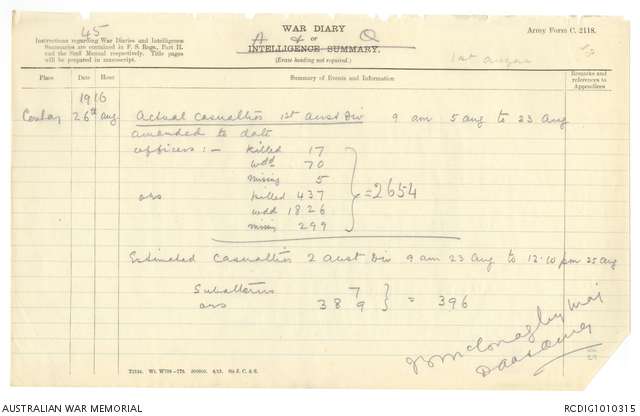 45
WAR DIARY
A & Q
or
INTELLIGENCE SUMMARY.
(Erase heading not required.)
Army Form C. 2118.
Instructions regarding War Diaries and Intelligence
Summaries are contained in F. S. Regs., Part II.
and the Staff Manual respectively. Title pages
will be prepared in manuscript.
1st Anzac
Place
Date
Hour
Summary of Events and Information
Remarks and
references to
Appendices
1916
26th Aug
Actual Casualties 1st Aust Div 9 am 5 Aug to 23 Aug
amended to date
officers :- killed 17
wdd 70
missing 5
ors killed 437
wdd 1826
missing 299
=2654
Estimated Casualties 2 Aust Div 9 am 23 Aug to 12.10 pm 25 Aug
Subalterns 7
ors 389
= 396
Maj
T2134. Wt. W708—776. 500000. 4/15. Sir J. C. & S.
AUSTRALIAN WAR MEMORIAL
RCDIG1010315